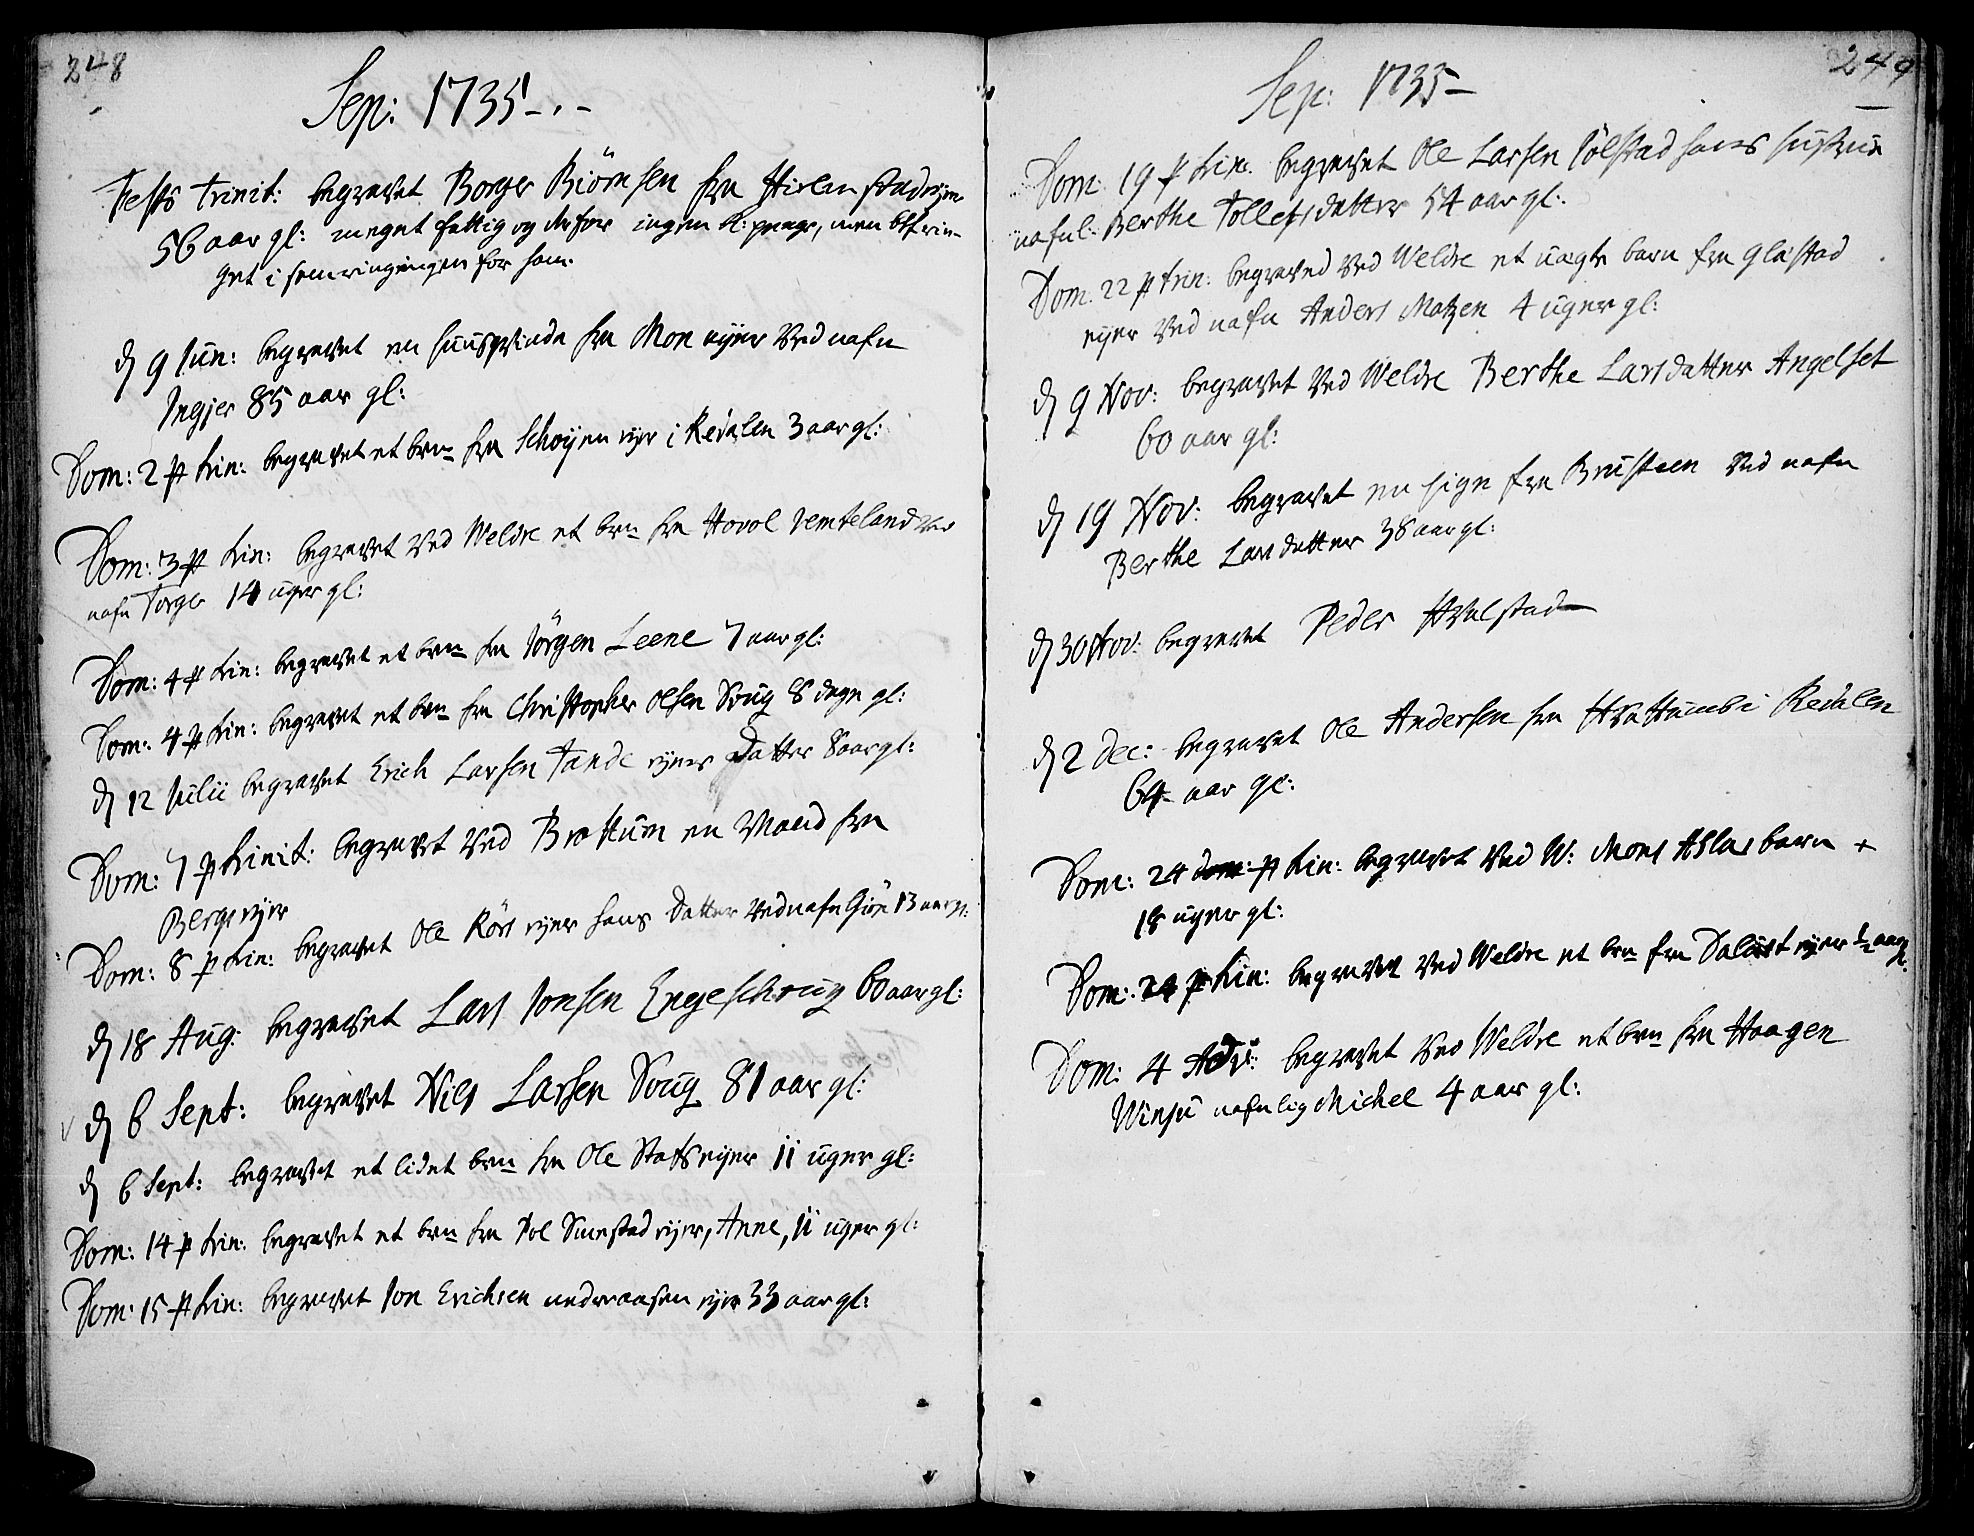 248
Sep: 1735
Festo Trinit: begravet Borger Biörnsen fra
56 aar gl: meget fattig og derfor ingen
get i for ham.
d 9 Jun: begravet en fra Mon eyer ved nafn
Ingier 85 aar gl:
Dom: 2 p trin: begravet et barn fra Schoyen eyer i Redalen 3 aar gl:
Dom: 3 p trin: begravet ved Weldre et barn fra Hovol Jemteland ved
nafn Torger 14 uger gl:
Dom: 4 p trin: begravet et barn fra Jörgen Leene 7 aar gl:
Dom: 4 p trin: begravet et barn fra Christopher Olsen Soug 8 dage gl:
d 12 Julii begravet Erich Larsen Tande eyers Datter 8 aar gl:
Dom: 7 p trinit: begravet ved Brøttum en Mand fra
Bergs eyer
Dom: 8 p trin: begravet Ole Rörs eyer hans Datter ved nafn 13 aar gl:
d 18 Aug: begravet Lars Jonsen Engeschoug 60 aar gl:
d 6 Sept: begravet Nils Larsen Soug 81 aar gl:
d 6 Sept: begravet et lidet barn fra Ole Stafs eyer 11 uger gl:
Dom: 14 p trin: begravet et barn fra Pol Smestad eyer, Anne, 11 uger gl:
Dom: 15 p trin: begravet Jon Erichsen nederaasen eyer 33 aar gl:
249
Sep: 1735
Dom: 19 p trin: begravet Ole Larsen hans hustrue
nafnl: Berthe Tollefsdatter 54 aar gl:
Dom: 22 p trin: begraved ved Weldre et uægte barn fra Glæstad
eyer ved nafn Anders Matzen 4 uger gl:
d 9 Nov: begravet ved Weldre Berthe Larsdatter Angelset
60 aar gl:
d 19 Nov: begravet en pige fra Brusteen ved nafn
Berthe Larsdatter 38 aar gl:
d 30 Nov: begravet Peder Hvalstad
d 2 Dec: begravet Ole Andersen fra i Redalen
64 aar gl:
Dom: 24 dom: p trin: begravet ved W: Mons barn +
18 uger gl:
Dom: 24 p trin: begravet ved Weldre et barn fra eyer ½ aar gl:
Dom: 4 Adv: begravet ved Weldre et barn fra Haagen
Winju nafnlig Michel 4 aar gl: